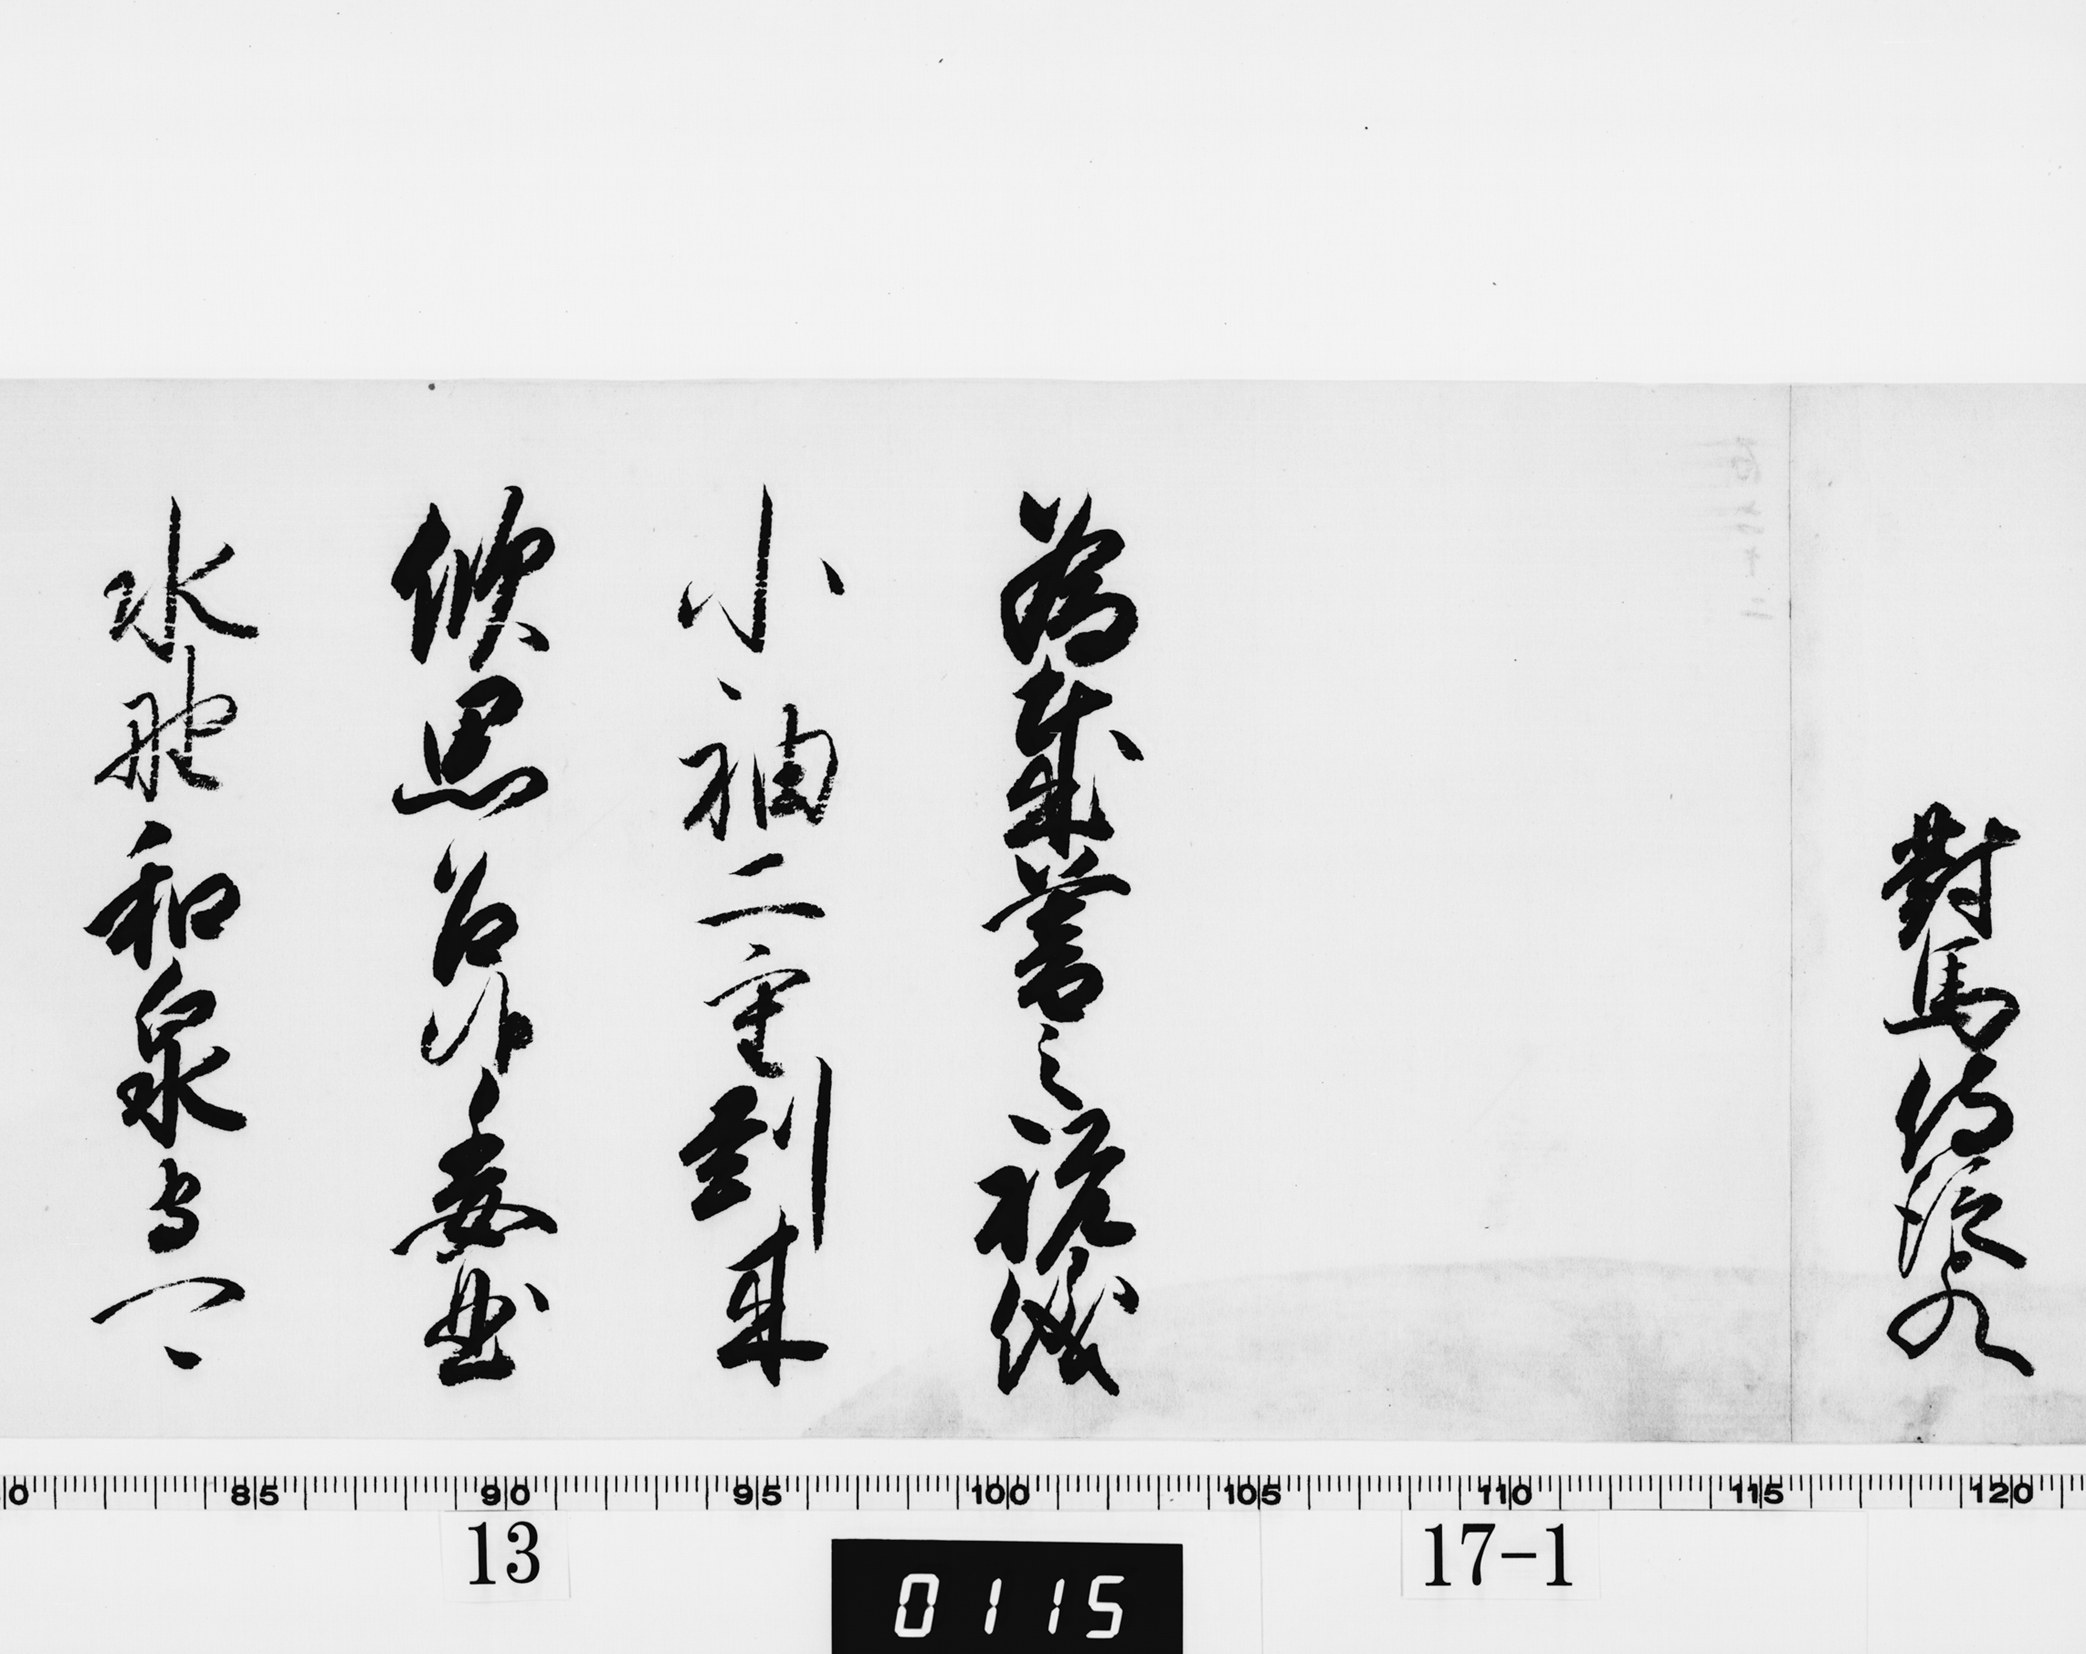 對馬侍從殿
為歳暮之祝儀
小袖二重到来
欣思召候委曲
水野和泉守可
13
17-1
0115
85 90 95 100 105 110 115 120